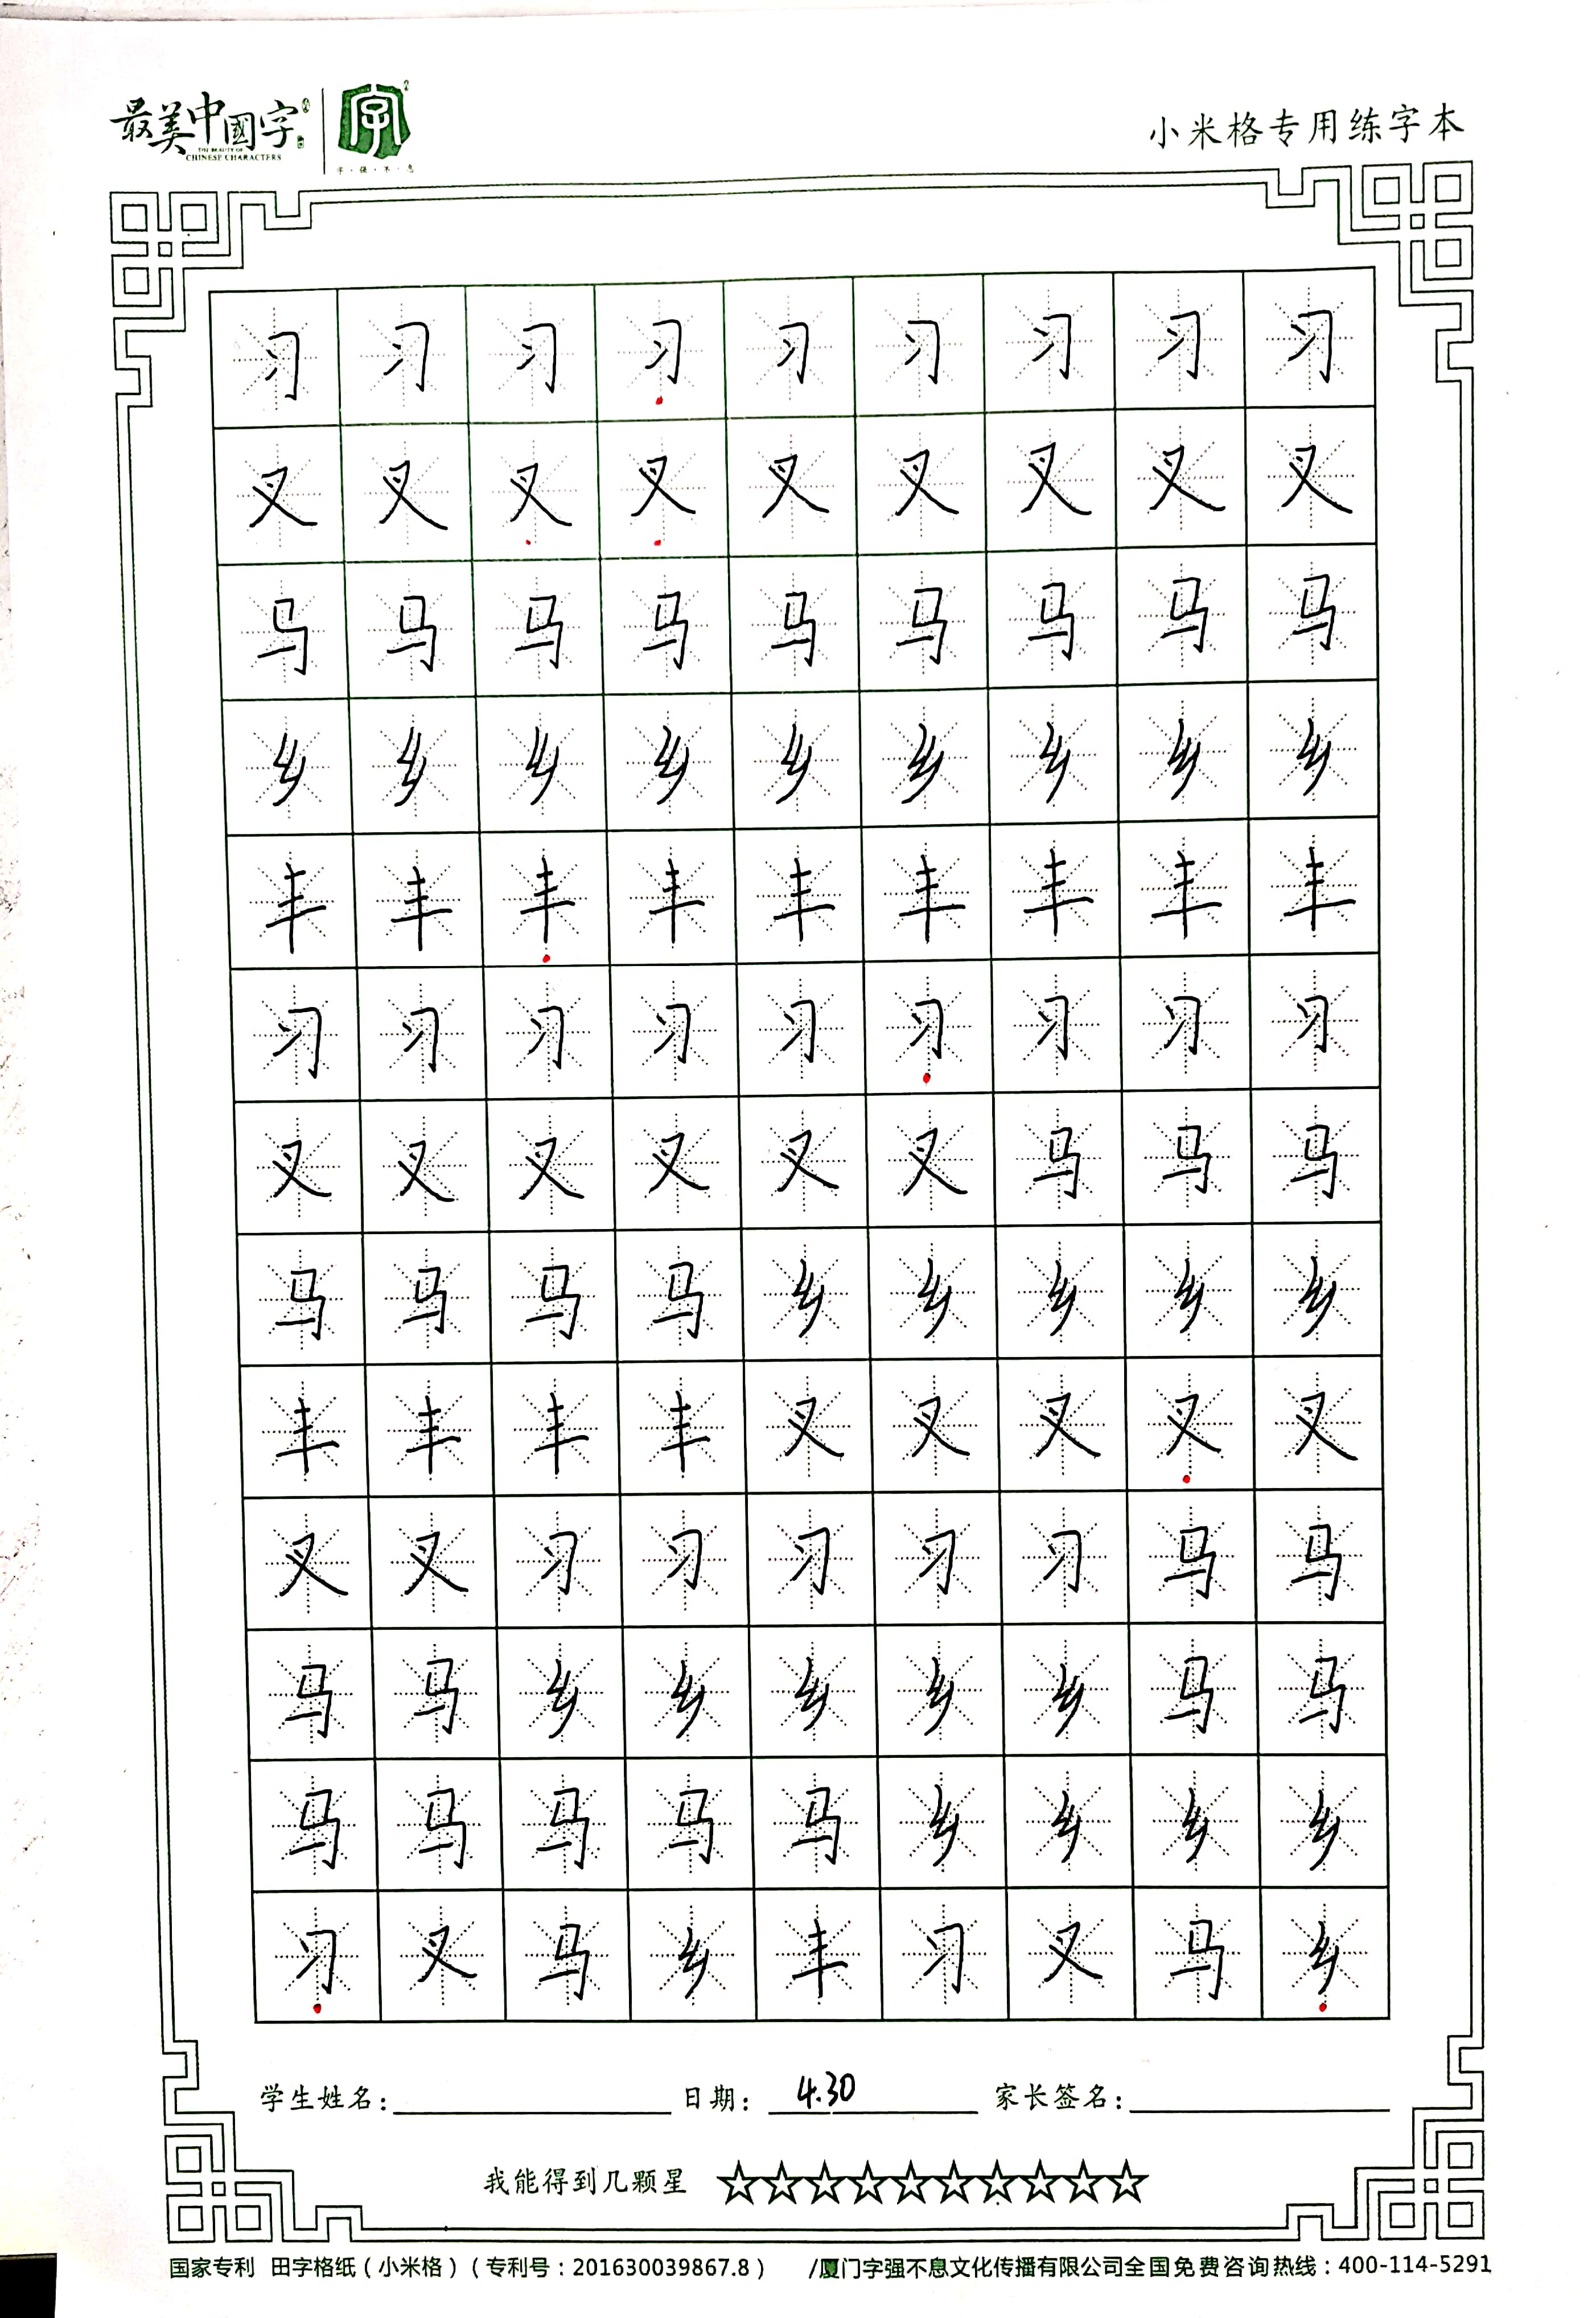 最美中國字
THE BEAUTY OF
CHINESE CHARACTERS
字
字·强·不·息
小米格专用练字本
习习习习习习习习习
叉叉叉叉叉叉叉叉叉
马马马马马马马马马
乡乡乡乡乡乡乡乡乡
丰丰丰丰丰丰丰丰丰
习习习习习习习习习
叉叉叉叉叉叉马马马
马马马马乡乡乡乡乡
丰丰丰丰叉叉叉叉叉
叉叉习习习习习马马
马马乡乡乡乡乡马马
马马马马马乡乡乡乡
习叉马乡丰习叉马乡
学生姓名: 日期: 4.30 家长签名:
我能得到几颗星 ☆☆☆☆☆☆☆☆☆☆
国家专利 田字格纸(小米格)(专利号:201630039867.8) /厦门字强不息文化传播有限公司全国免费咨询热线:400-114-5291